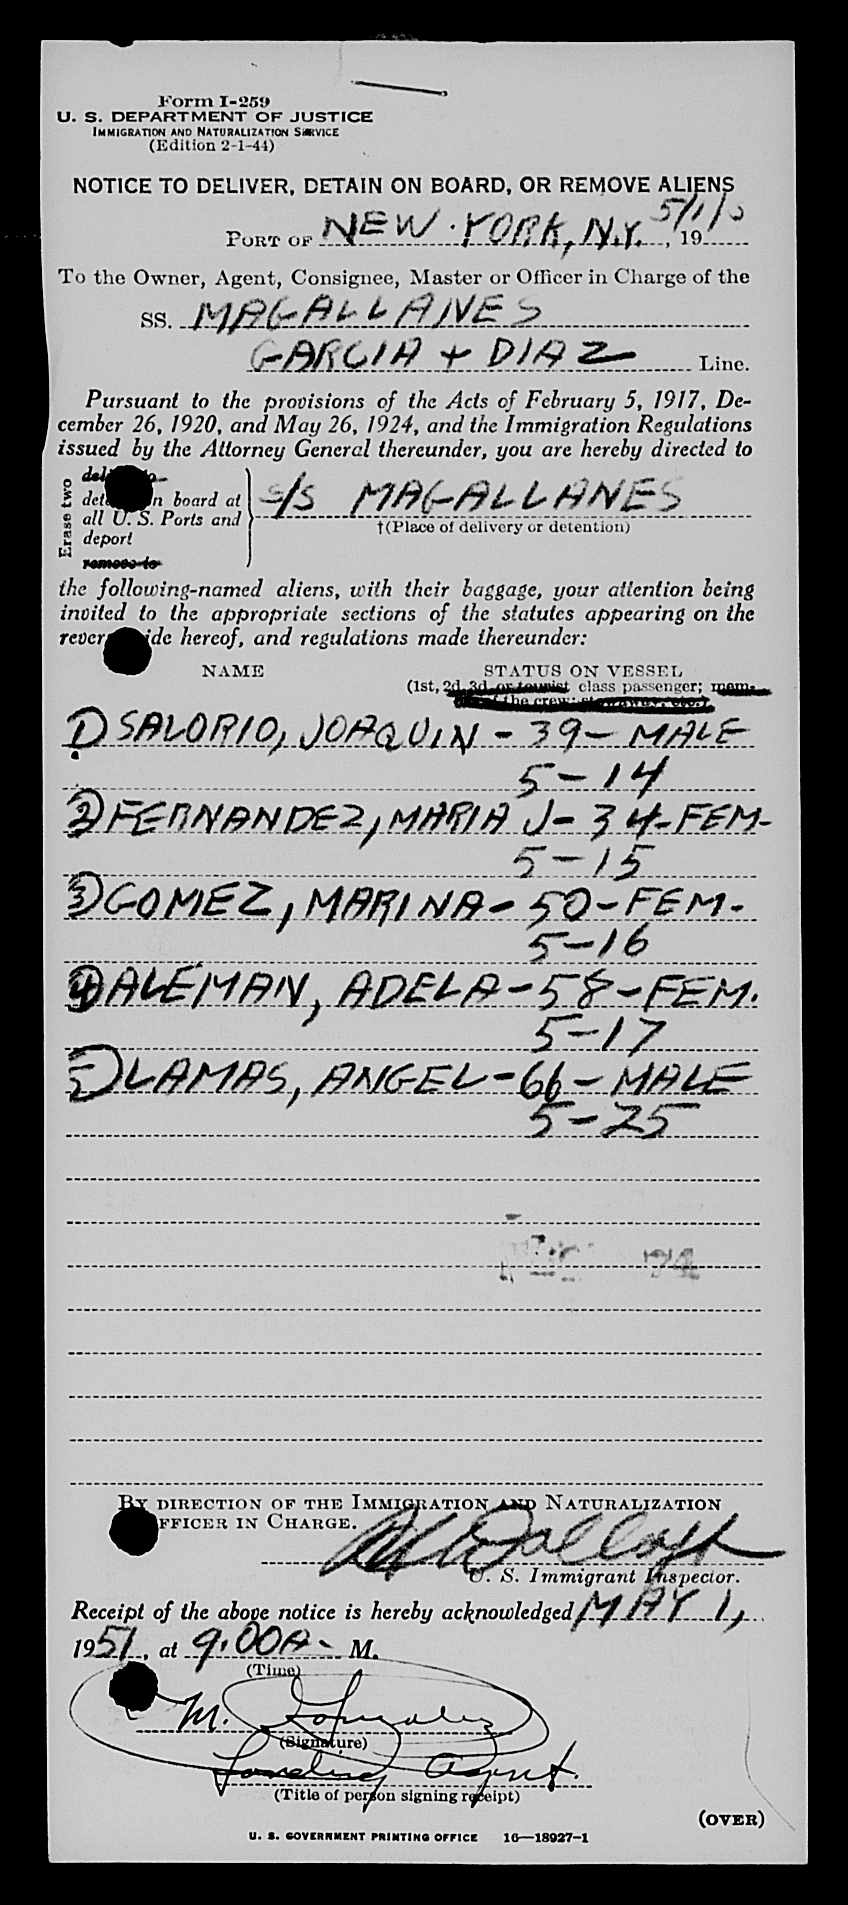 Form I-259
U. S. DEPARTMENT OF JUSTICE
IMMIGRATION AND NATURALIZATION SERVICE
(Edition 2-1-44)
NOTICE TO DELIVER, DETAIN ON BOARD, OR REMOVE ALIENS
PORT OF NEW YORK, N.Y. 5/1/5, 19
To the Owner, Agent, Consignee, Master or Officer in Charge of the
SS. MAGALLANES
GARCIA + DIAZ Line.
Pursuant to the provisions of the Acts of February 5, 1917, De-
cember 26, 1920, and May 26, 1924, and the Immigration Regulations
issued by the Attorney General thereunder, you are hereby directed to
Erase two
n board at
all U. S. Ports and
deport
remove to
S/S MAGALLANES
†(Place of delivery or detention)
the following-named aliens, with their baggage, your attention being
invited to the appropriate sections of the statutes appearing on the
rever ide hereof, and regulations made thereunder:
NAME STATUS ON VESSEL
(1st, 2d, 3d, or tourist class passenger; mem-
of the crew; stowaway, etc.)
1) SALORIO, JOAQUIN - 39 - MALE
5-14
2) FERNANDEZ, MARIA J - 34 - FEM-
5-15
3) GOMEZ, MARINA - 50 - FEM-
5-16
4) ALEMAN, ADELA - 58 - FEM.
5-17
5) LAMAS, ANGEL - 66 - MALE
5-25
BY DIRECTION OF THE IMMIGRATION AND NATURALIZATION
FFICER IN CHARGE.
U. S. Immigrant Inspector.
Receipt of the above notice is hereby acknowledged MAY 1,
1951, at 9:00 A- M.
(Time)
M. Gonzalez
(Signature)
Landing Agent.
(Title of person signing receipt)
(OVER)
U. S. GOVERNMENT PRINTING OFFICE 16—18927-1